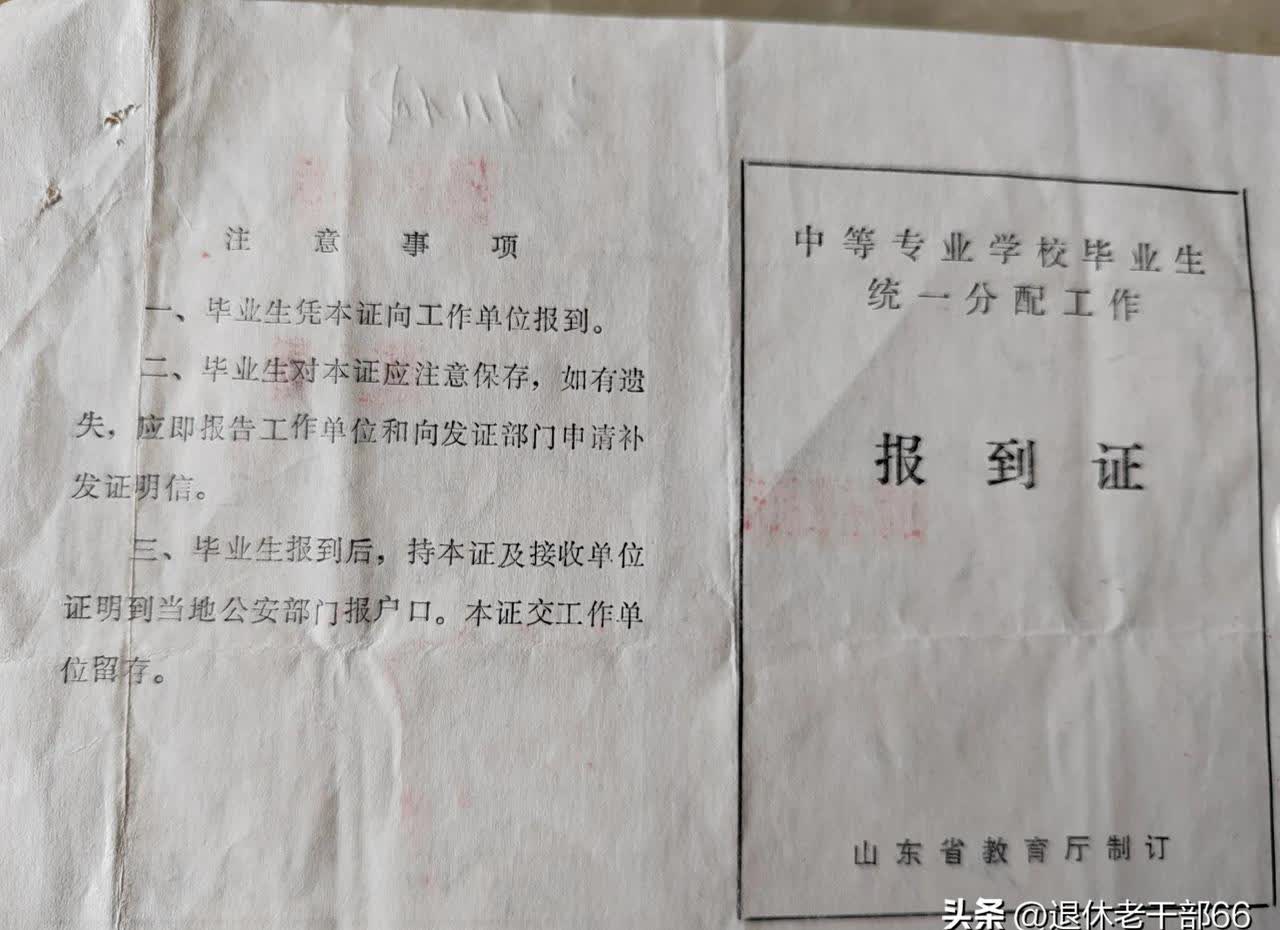 注意事项
一、毕业生凭本证向工作单位报到。
二、毕业生对本证应注意保存，如有遗
失，应即报告工作单位和向发证部门申请补
发证明信。
三、毕业生报到后，持本证及接收单位
证明到当地公安部门报户口。本证交工作单
位留存。
中等专业学校毕业生
统一分配工作
报到证
山东省教育厅制订
头条 @退休老干部66